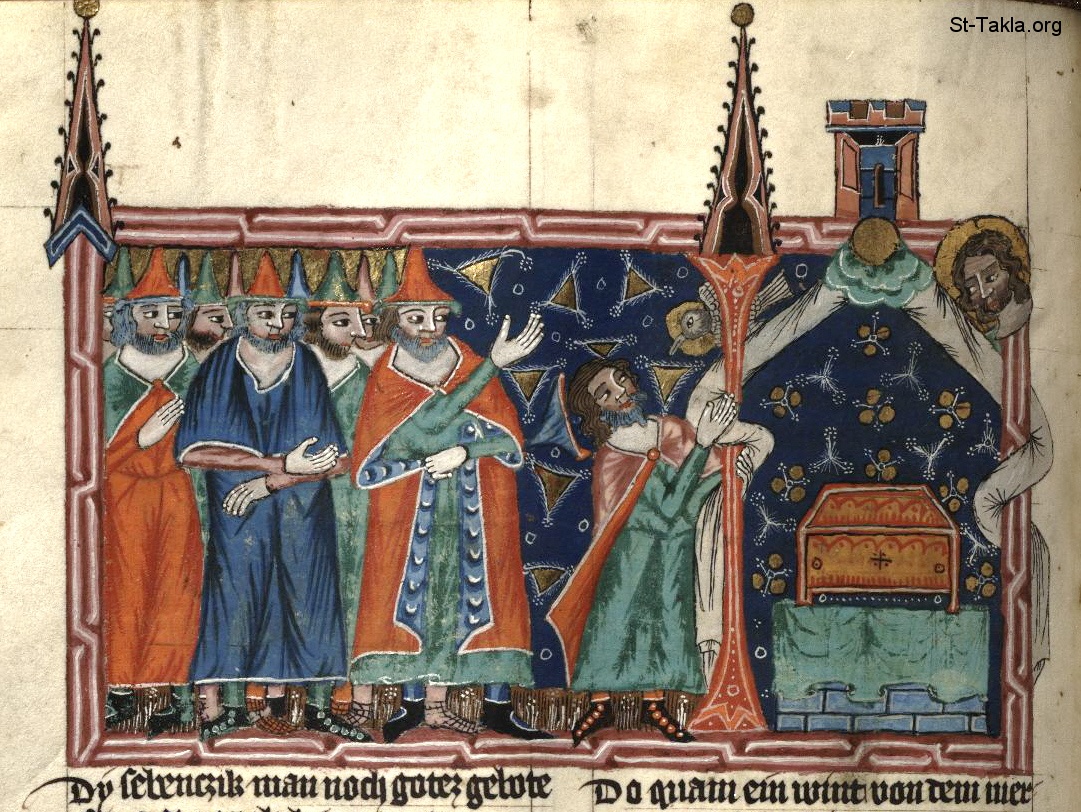 St-Takla.org
Dÿ sebenczik man noch gotez gebote
Do quam ein wint von dem mer